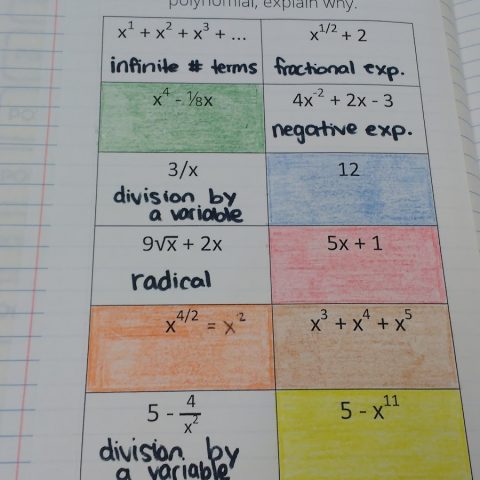 polynomial, explain why.
x¹ + x² + x³ + ...
infinite # terms
x^1/2 + 2
fractional exp.
x⁴ - ⅛x
4x⁻² + 2x - 3
negative exp.
3/x
division by
a variable
12
9√x + 2x
radical
5x + 1
x^4/2 = x²
x³ + x⁴ + x⁵
5 - 4/x²
division by
a variable
5 - x¹¹